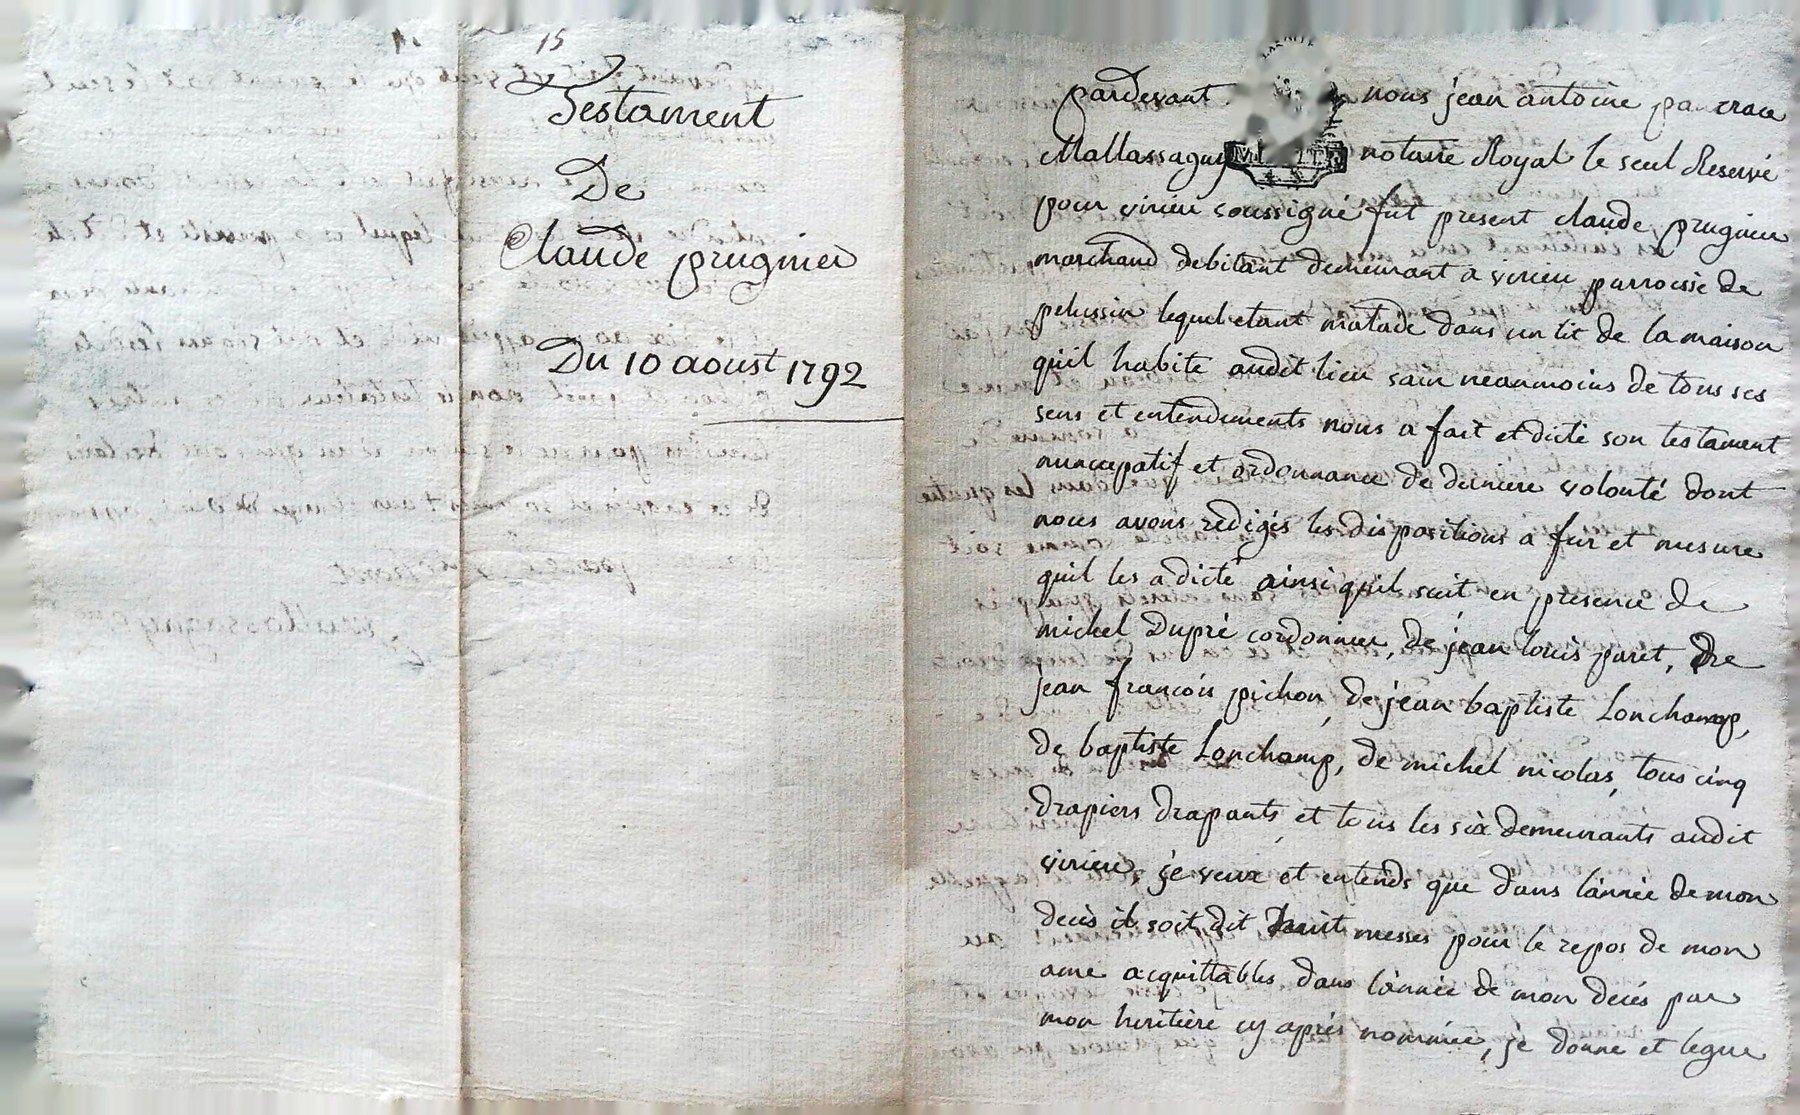 15
Testament
De
Claude prugnier
Du 10 aoust 1792
pardevant nous jean antoine pancrace
Mallassagny notaire Royal le seul Reservé
pour virieu soussigné fut present claude prugnier
marchand debitant demeurant a virieu parroisse de
pelussin lequel etant malade dans un lit de la maison
quil habite audit lieu sain neanmoins de tous ses
sens et entendements nous a fait et dicté son testament
nuncupatif et ordonnance de derniere volonté dont
nous avons redigés les dispositions a fur et mesure
quil les a dicté ainsi quil suit en presence de
michel Dupré cordonnier, de jean louis paret, De
jean françois pichon, de jean baptiste Lonchamp,
de baptiste Lonchamp, de michel nicolas, tous cinq
drapiers drapants et tous les six demeurants audit
virieu, je veux et entends que dans l'année de mon
decés il soit dit huit messes pour le repos de mon
ame acquittables dans l'année de mon decés par
mon heritière cy aprés nommée, je donne et legue